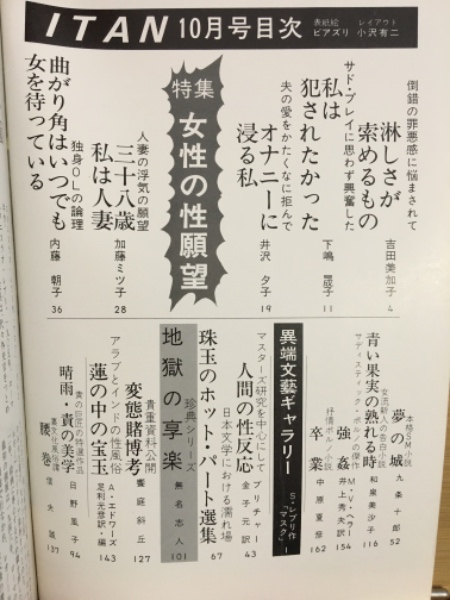 ITAN 10月号目次
表紙絵 ビアズリ
レイアウト 小沢有二
倒錯の罪悪感に悩まされて
淋しさが
索めるもの
吉田美加子 4
サド・プレイに思わず興奮した
私は
犯されたかった
下嶋 晟子 11
夫の愛をかたくなに拒んで
オナニーに
浸る私
井沢 夕子 19
特集
女性の性願望
人妻の浮気の願望
三十八歳
私は人妻
加藤ミツ子 28
独身OLの論理
曲がり角はいつでも
女を待っている
内藤 朝子 36
本格SM小説
夢の城
九条十郎 52
女流新人の告白小説
青い果実の熟れる時
和泉美沙子 116
サディスティック・ポルノの傑作
強姦
M・V・ヘラー
井上秀夫訳 154
抒情ポルノ小説
卒業
中原夏彦 162
異端文藝ギャラリー
S・レプリ作「マスク」 1
マスターズ研究を中心にして
人間の性反応
ブリチャー
金子元訳 43
日本文学における濡れ場
珠玉のホット・パート選集
67
珍典シリーズ
地獄の享楽
無名志人 101
貴重資料公開
変態賭博考
饗庭斜丘 127
アラブとインドの性風俗
蓮の中の宝玉
A・エドワーズ
足利光彦訳・編 143
責の巨匠の特選作品
晴雨・責の美学
日野風子 94
腰巻
信夫誠 137